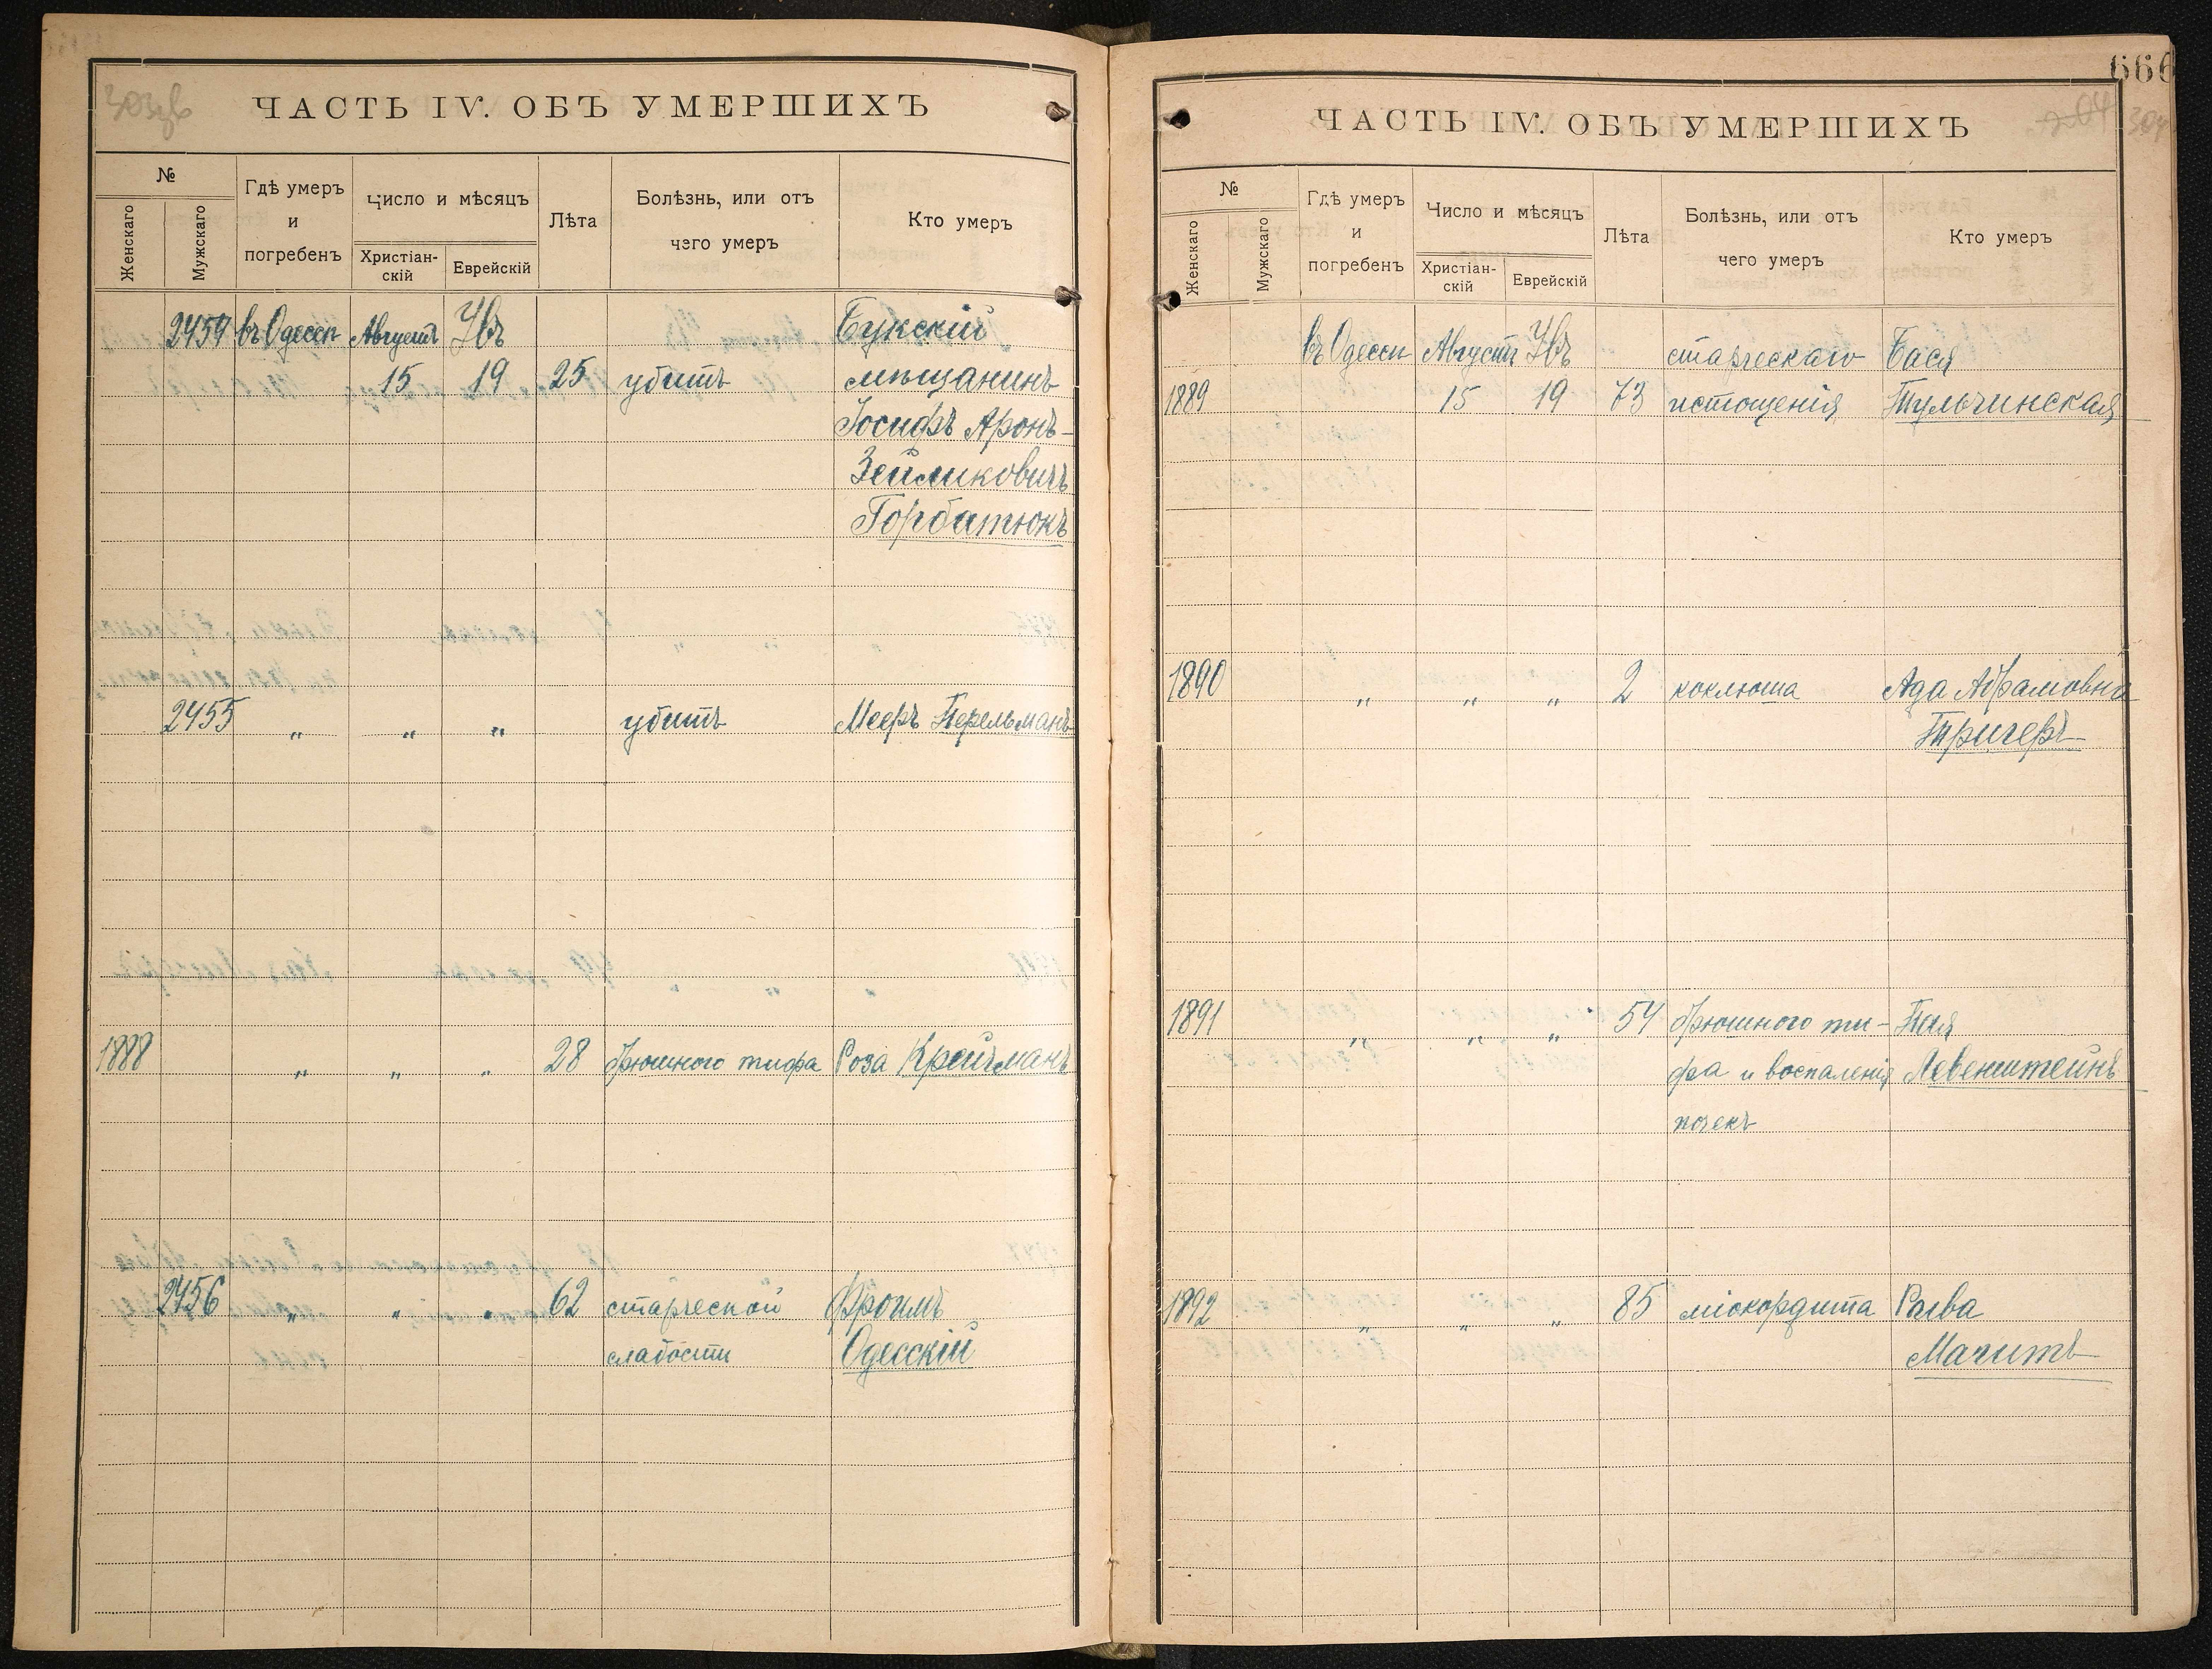 303 об
ЧАСТЬ IV. ОБЪ УМЕРШИХЪ
№
Женскаго
Мужскаго
Гдѣ умеръ
и
погребенъ
Число и мѣсяцъ
Христіан-
скій
Еврейскій
Лѣта
Болѣзнь, или отъ
чего умеръ
Кто умеръ
2454 въ Одессѣ Августъ Увъ Букскій
15 19 25 убитъ мѣщанинъ
Іосифъ Аронъ-
Зейликовичъ
Горбатюкъ
2455 „ „ „ убитъ Мееръ Перельманъ
1888 „ „ „ 28 брюшного тифа Роза Крейчманъ
2456 „ „ „ 62 старческой Фроимъ
слабости Одесскій
666
204 304
ЧАСТЬ IV. ОБЪ УМЕРШИХЪ
№
Женскаго
Мужскаго
Гдѣ умеръ
и
погребенъ
Число и мѣсяцъ
Христіан-
скій
Еврейскій
Лѣта
Болѣзнь, или отъ
чего умеръ
Кто умеръ
въ Одессѣ Августъ Увъ старческаго Бася
1889 15 19 73 истощенія Тульчинская
1890 „ „ „ 2 коклюша Ада Абрамовна
Тригеръ
1891 „ „ „ 54 брюшного ти- Пая
фа и воспаленія Левенштейнъ
почекъ
1892 „ „ „ 85 міокордита Расва
Мачитъ